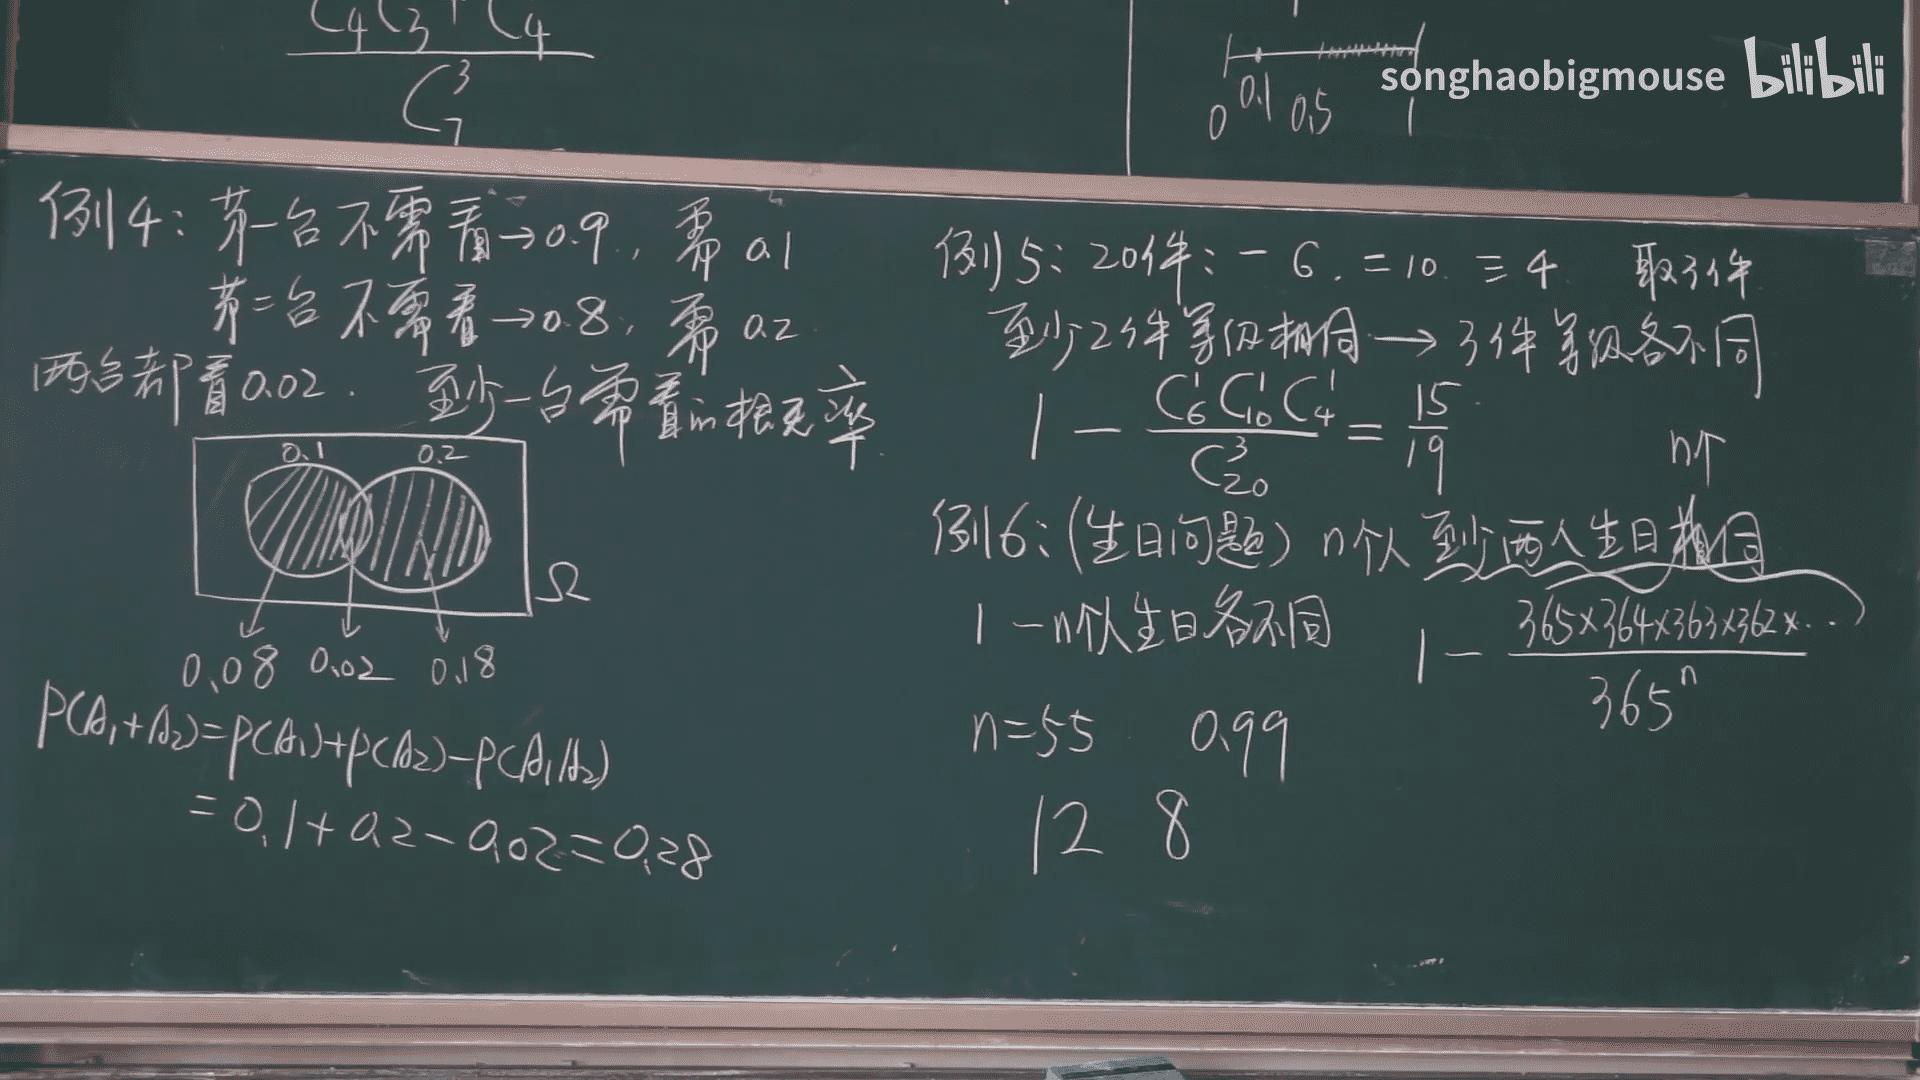 C₄ C₃ + C₄
C₇³
0 0.1 0.5 1
songhaobigmouse bilibili
例4: 第一台不需看→0.9, 需 0.1
第二台不需看→0.8, 需 0.2
两台都看0.02. 至少一台需看的概率.
0.1 0.2
Ω
0.08 0.02 0.18
P(A₁+A₂)=P(A₁)+P(A₂)-P(A₁A₂)
=0.1+0.2-0.02=0.28
例5: 20件: 一 6. 二 10. 三 4. 取3件
至少2件等级相同→3件等级各不同
1 - C₆¹C₁₀¹C₄¹ / C₂₀³ = 15/19
n个
例6: (生日问题) n个人 至少两人生日相同
1 - n个人生日各不同
1 - 365×364×363×362×… / 365ⁿ
n=55 0.99
12 8